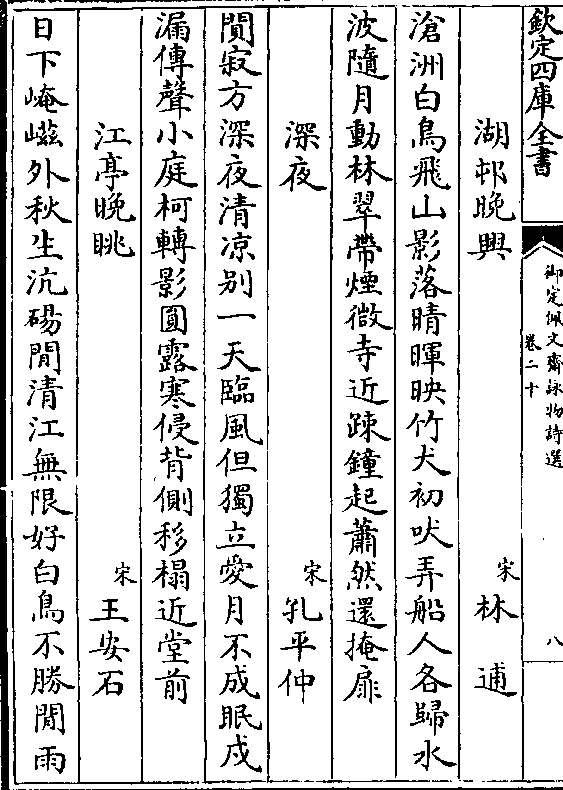 欽定四庫全書
御定佩文齋詠物詩選
卷二十
八
湖邨晚興
宋
林逋
滄洲白鳥飛山影落晴暉映竹犬初吠弄船人各歸水
波隨月動林翠帶煙微寺近踈鐘起蕭然還掩扉
深夜
宋
孔平仲
閴寂方深夜清凉别一天臨風但獨立愛月不成眠戍
漏傳聲小庭柯轉影圓露寒侵背側移榻近堂前
江亭晚眺
宋
王安石
日下崦嵫外秋生沆碭間清江無限好白鳥不勝閒雨